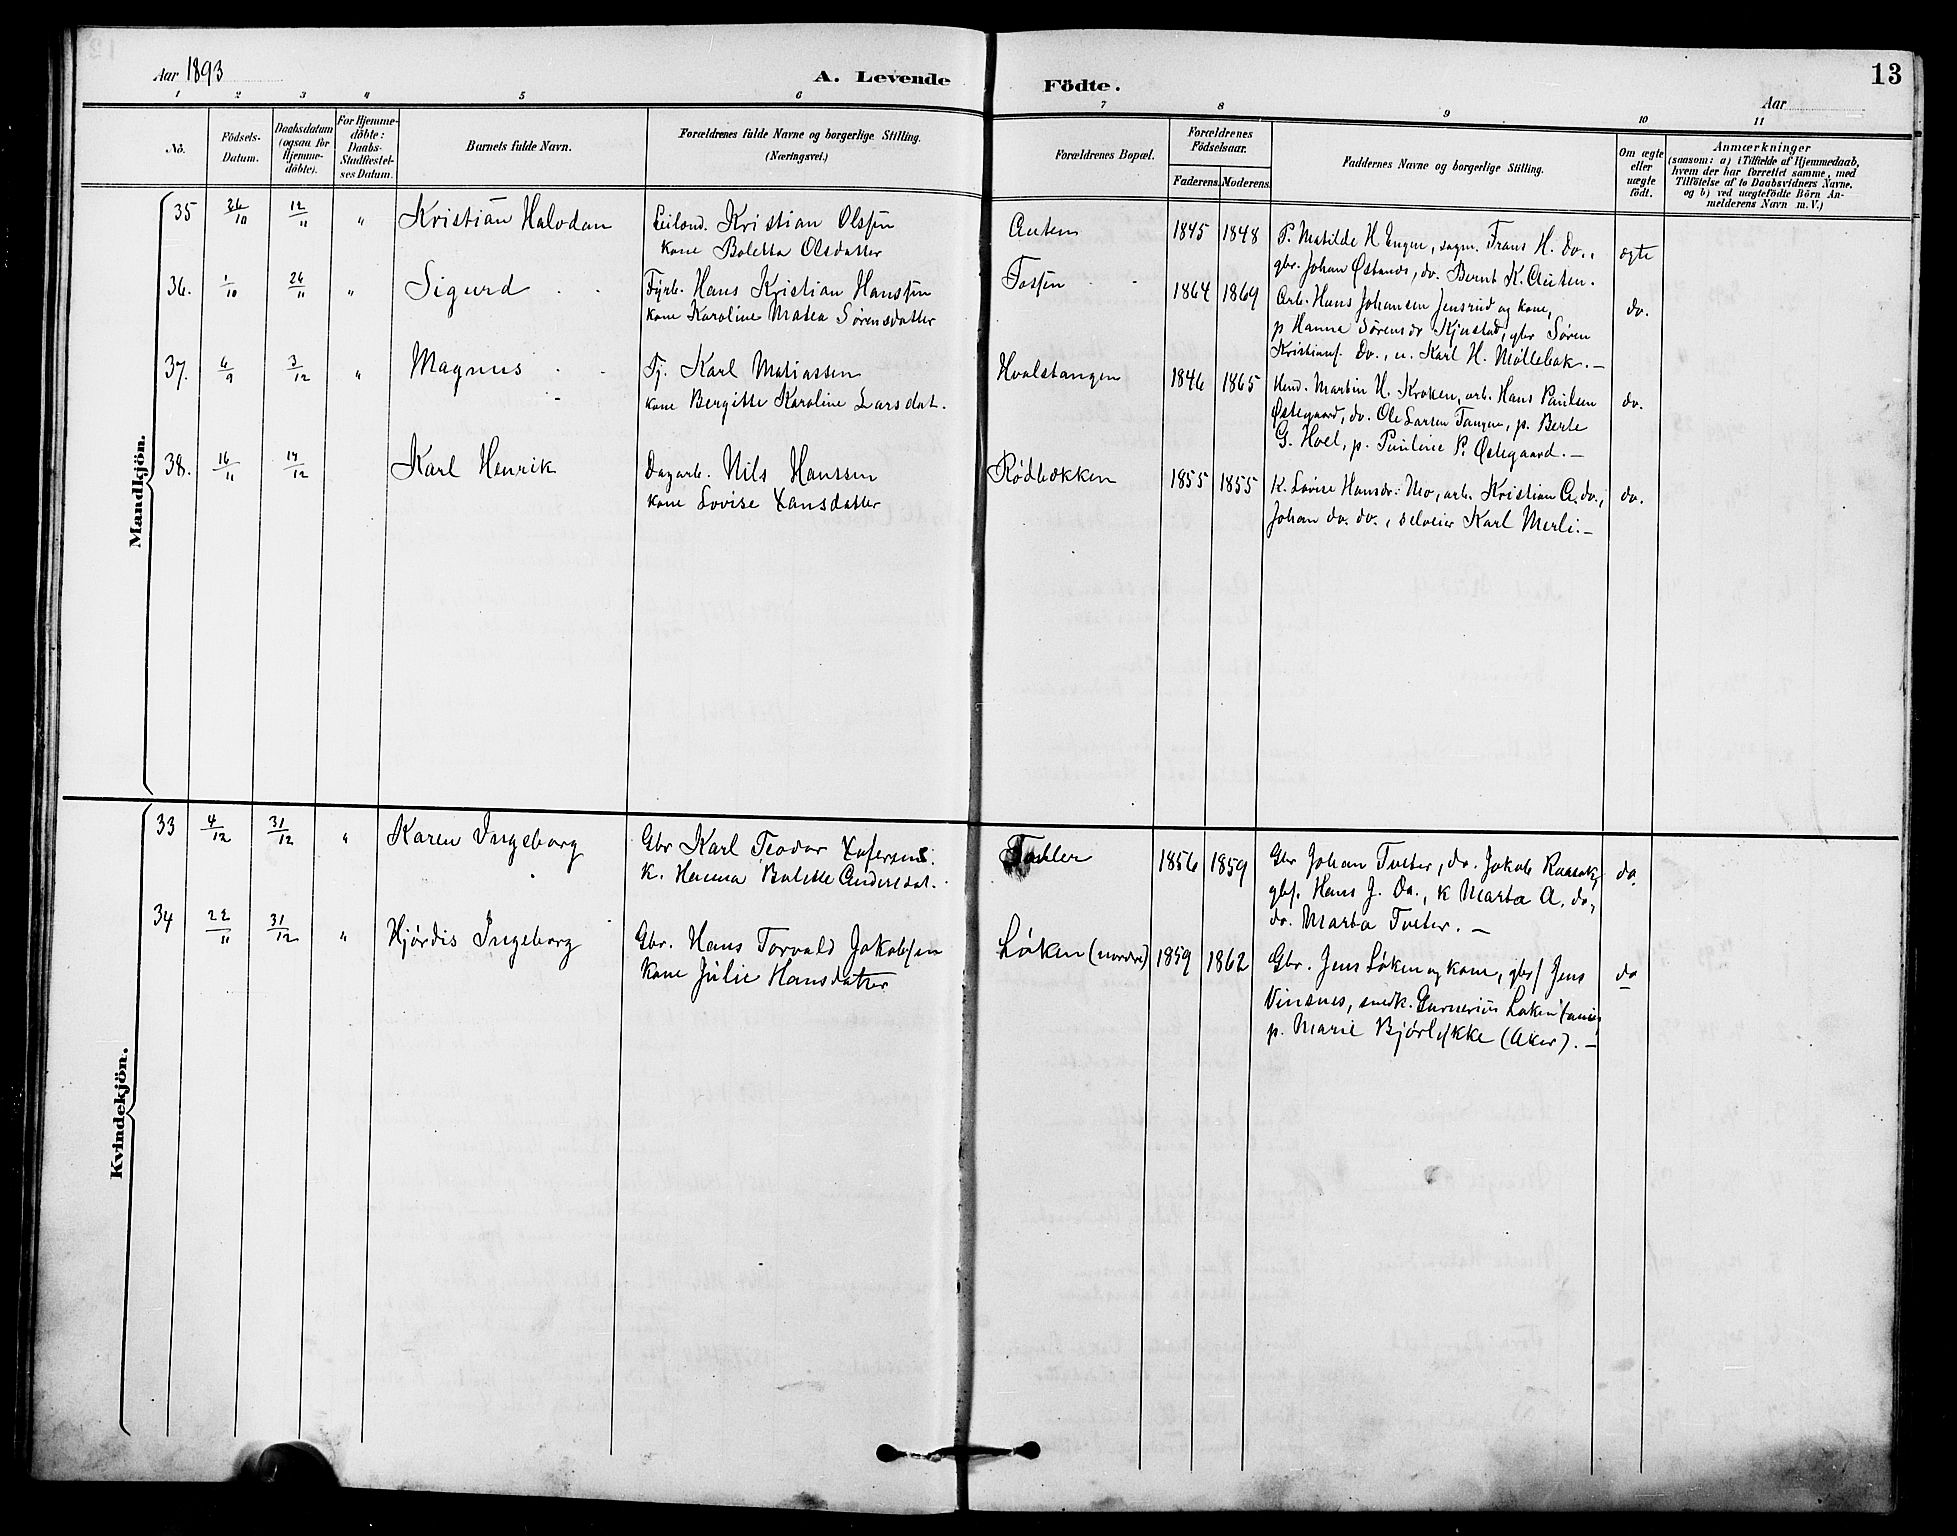 Aar 1893
A. Levende Födte.
13
Aar
1 2 3 4 5 6 7 8 9 10 11
No.
Födsels-
Datum.
Daabsdatum
(ogsaa for
Hjemme-
döbte).
For Hjemme-
döbte:
Daabs-
Stadfæstel-
ses Datum.
Barnets fulde Navn.
Forældrenes fulde Navne og borgerlige Stilling.
(Næringsvei.)
Forældrenes Bopæl.
Forældrenes
Födselsaar.
Faderens.
Moderens.
Faddernes Navne og borgerlige Stilling.
Om ægte
eller
uægte
födt.
Anmærkninger
(saasom: a) i Tilfælde af Hjemmedaab,
hvem der har forrettet samme, med
Tilföielse af to Daabsvidners Navne,
og b) ved uægtefödte Börn An-
melderens Navn m. V.)
Mandkjön.
35 26/10 12/11 " Kristian Halvdan
Leilend. Kristian Olssen
kone Boletta Olsdatter
Auten
1845 1848
P. Matilde H Engen, sagm. Frans H. do.,
gbr. Johan Østands, do. Bernt K. Auten.
egte
36. 1/10 26/11 " Sigurd
Fyrb. Hans Kristian Hanssen
kone Karoline Matea Sørensdatter
Fossen
1864 1869
Arb. Hans Johansen Jensrud og kone,
p Hanna Sørensdr Kjustad, gbr Søren
Kristians. do., u. Karl H. Møllebak. —
do.
37. 6/9 3/12 " Magnus
Tj. Karl Matiassen
kone Bergitte Karoline Larsdat.
Hvalstangen
1846 1865
Hend. Martin H. Kroken, arb. Hans Paulsen
Østegaard, do. Ole Larsen Tangen, p. Berte
G. Hvel, p. Pauline P. Østegaard. —
do.
38. 16/11 17/12 Karl Henrik
Dagarb. Nils Hanssen
kone Lovise Hansdatter
Rødbækken
1855 1855
K. Lovise Hansdr: Mo, arb. Kristian A. do.,
Johan do. do., selveier Karl Merli. —
do.
Kvindekjön.
33 4/12 31/12 " Karen Ingeborg
Gbr Karl Teodor
K. Hanna Bolette Andersdat.
1856 1859
Gbr Johan Tveter, do. Jakob
gbs. Hans J. do., k Marta A. do,
do. Marta Tveter. —
do.
34 22/11 31/12 " Hjördis Ingeborg
Gbr. Hans Torvald Jakobsen
kone Julie Hansdatter
Løken (nordre)
1859 1862
Gbr. Jens Løken og kone, gbs Jens
Vinsnes, smedk. Gunerius Løken
p. Marie Bjørlykke (Aker). —
do